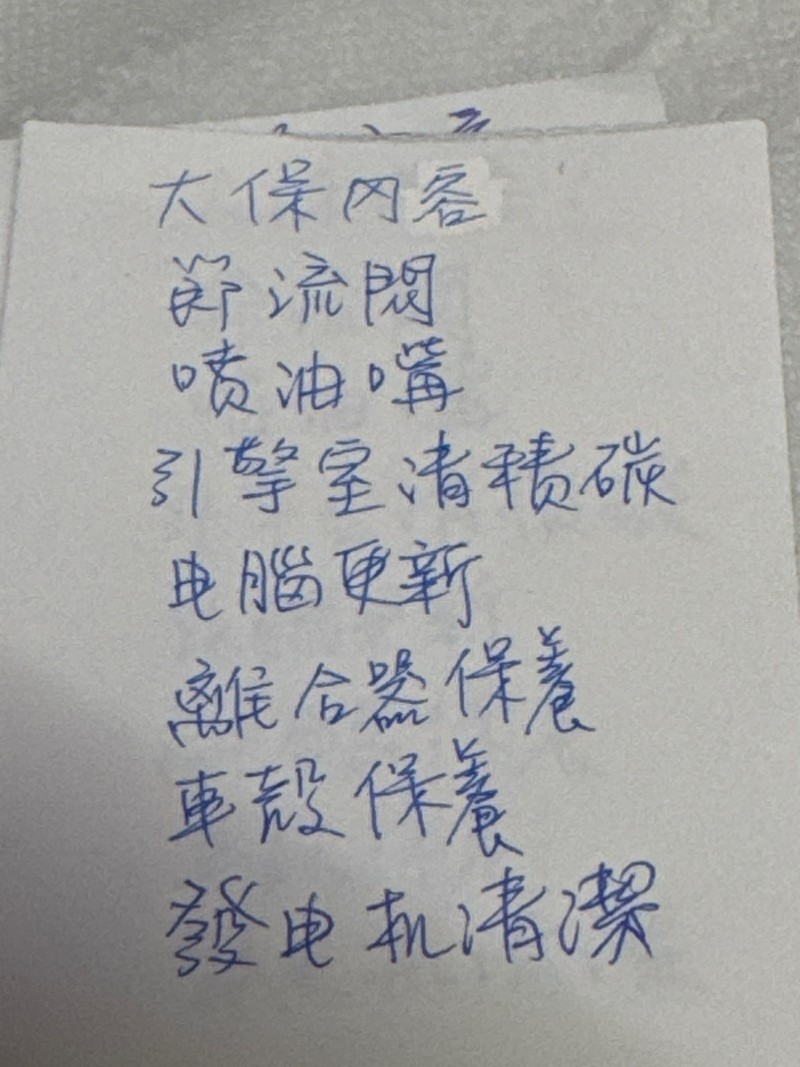 大保內容
節流閥
噴油嘴
引擎室清積碳
电腦更新
離合器保養
車殼保養
發电机清潔